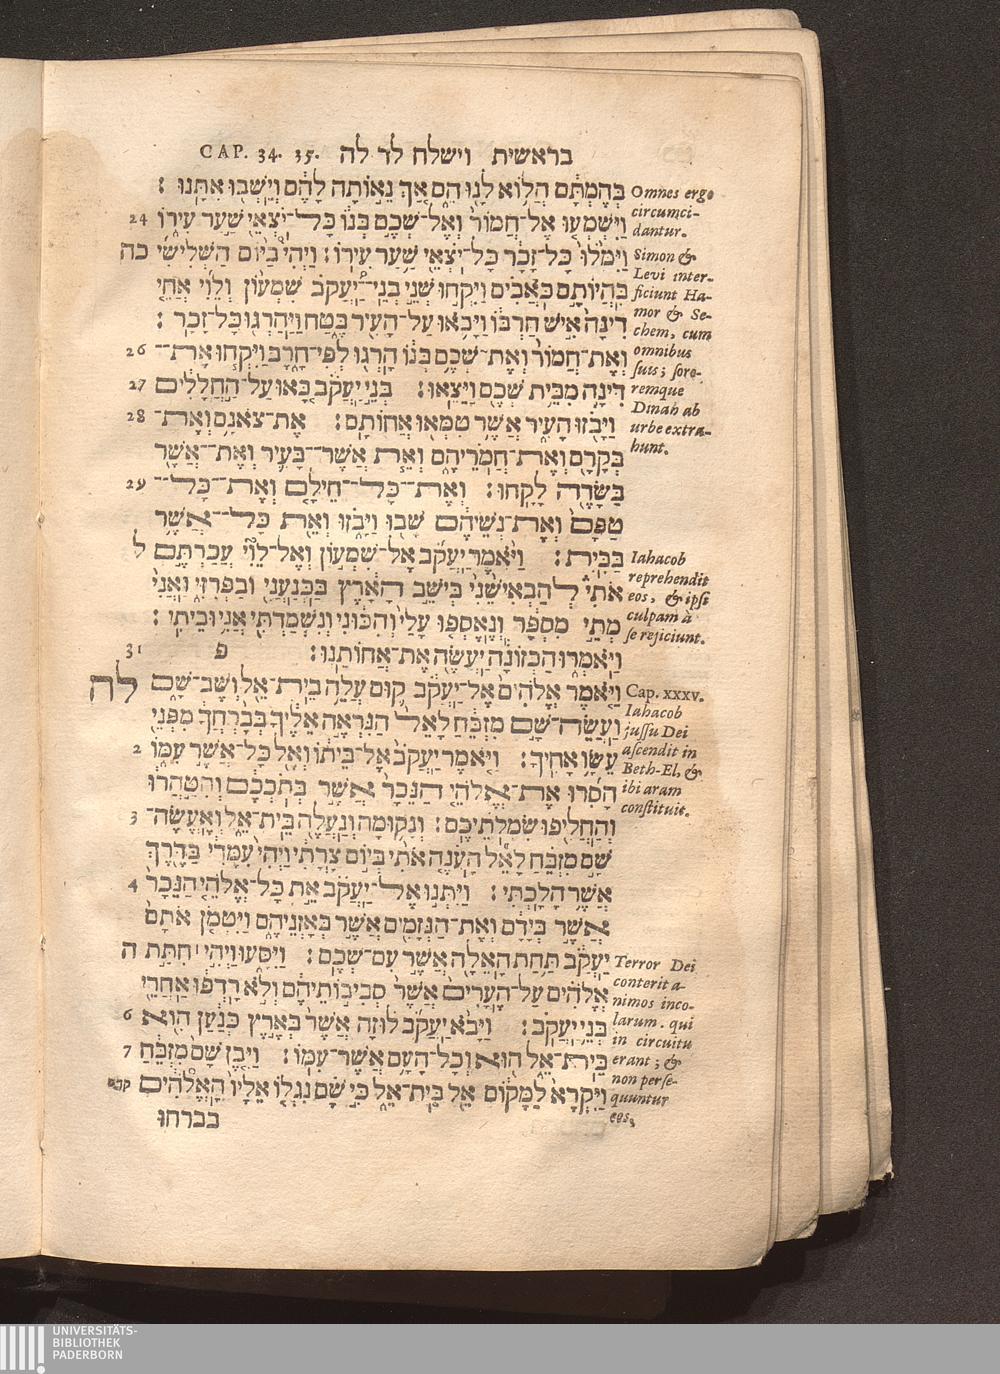 בראשית וישלח לד לה CAP. 34. 35.
בְּהֶמְתָּם הֲלוֹא לָנוּ הֵם אַךְ נֵאוֹתָה לָהֶם וְיֵשְׁבוּ אִתָּנוּ׃
וַיִּשְׁמְעוּ אֶל־חֲמוֹר וְאֶל־שְׁכֶם בְּנוֹ כָּל־יֹצְאֵי שַׁעַר עִירוֹ 24
וַיִּמֹּלוּ כָּל־זָכָר כָּל־יֹצְאֵי שַׁעַר עִירוֹ׃ וַיְהִי בַיּוֹם הַשְּׁלִישִׁי כה
בִּהְיוֹתָם כֹּאֲבִים וַיִּקְחוּ שְׁנֵי בְנֵי־יַעֲקֹב שִׁמְעוֹן וְלֵוִי אֲחֵי
דִינָה אִישׁ חַרְבּוֹ וַיָּבֹאוּ עַל־הָעִיר בֶּטַח וַיַּהַרְגוּ כָּל־זָכָר׃
וְאֶת־חֲמוֹר וְאֶת־שְׁכֶם בְּנוֹ הָרְגוּ לְפִי־חָרֶב וַיִּקְחוּ אֶת־ 26
דִּינָה מִבֵּית שְׁכֶם וַיֵּצֵאוּ׃ בְּנֵי יַעֲקֹב בָּאוּ עַל־הַחֲלָלִים 27
וַיָּבֹזּוּ הָעִיר אֲשֶׁר טִמְּאוּ אֲחוֹתָם׃ אֶת־צֹאנָם וְאֶת־ 28
בְּקָרָם וְאֶת־חֲמֹרֵיהֶם וְאֵת אֲשֶׁר־בָּעִיר וְאֶת־אֲשֶׁר
בַּשָּׂדֶה לָקָחוּ׃ וְאֶת־כָּל־חֵילָם וְאֶת־כָּל־ 29
טַפָּם וְאֶת־נְשֵׁיהֶם שָׁבוּ וַיָּבֹזּוּ וְאֵת כָּל־אֲשֶׁר
בַּבָּיִת׃ וַיֹּאמֶר יַעֲקֹב אֶל־שִׁמְעוֹן וְאֶל־לֵוִי עֲכַרְתֶּם ל
אֹתִי לְהַבְאִישֵׁנִי בְּיֹשֵׁב הָאָרֶץ בַּכְּנַעֲנִי וּבַפְּרִזִּי וַאֲנִי
מְתֵי מִסְפָּר וְנֶאֶסְפוּ עָלַי וְהִכּוּנִי וְנִשְׁמַדְתִּי אֲנִי וּבֵיתִי׃
וַיֹּאמְרוּ הַכְזוֹנָה יַעֲשֶׂה אֶת־אֲחוֹתֵנוּ׃ פ 31
וַיֹּאמֶר אֱלֹהִים אֶל־יַעֲקֹב קוּם עֲלֵה בֵית־אֵל וְשֶׁב־שָׁם לה
וַעֲשֵׂה־שָׁם מִזְבֵּחַ לָאֵל הַנִּרְאֶה אֵלֶיךָ בְּבָרְחֲךָ מִפְּנֵי
עֵשָׂו אָחִיךָ׃ וַיֹּאמֶר יַעֲקֹב אֶל־בֵּיתוֹ וְאֶל כָּל־אֲשֶׁר עִמּוֹ 2
הָסִרוּ אֶת־אֱלֹהֵי הַנֵּכָר אֲשֶׁר בְּתֹכְכֶם וְהִטַּהֲרוּ
וְהַחֲלִיפוּ שִׂמְלֹתֵיכֶם׃ וְנָקוּמָה וְנַעֲלֶה בֵּית־אֵל וְאֶעֱשֶׂה־ 3
שָּׁם מִזְבֵּחַ לָאֵל הָעֹנֶה אֹתִי בְּיוֹם צָרָתִי וַיְהִי עִמָּדִי בַּדֶּרֶךְ
אֲשֶׁר הָלָכְתִּי׃ וַיִּתְּנוּ אֶל־יַעֲקֹב אֵת כָּל־אֱלֹהֵי הַנֵּכָר 4
אֲשֶׁר בְּיָדָם וְאֶת־הַנְּזָמִים אֲשֶׁר בְּאָזְנֵיהֶם וַיִּטְמֹן אֹתָם
יַעֲקֹב תַּחַת הָאֵלָה אֲשֶׁר עִם־שְׁכֶם׃ וַיִּסָּעוּ וַיְהִי חִתַּת ה
אֱלֹהִים עַל־הֶעָרִים אֲשֶׁר סְבִיבוֹתֵיהֶם וְלֹא רָדְפוּ אַחֲרֵי
בְּנֵי יַעֲקֹב׃ וַיָּבֹא יַעֲקֹב לוּזָה אֲשֶׁר בְּאֶרֶץ כְּנַעַן הִוא 6
בֵּית־אֵל הוּא וְכָל־הָעָם אֲשֶׁר־עִמּוֹ׃ וַיִּבֶן שָׁם מִזְבֵּחַ 7
וַיִּקְרָא לַמָּקוֹם אֵל בֵּית־אֵל כִּי שָׁם נִגְלוּ אֵלָיו הָאֱלֹהִים
בברחו
Omnes ergo
circumci-
dantur.
Simon &
Levi inter-
ficiunt Ha-
mor & Se-
chem, cum
omnibus
suis; soro-
remque
Dinah ab
urbe extra-
hunt.
Iahacob
reprehendit
eos, & ipsi
culpam à
se rejiciunt.
Cap. XXXV.
Iahacob
jussu Dei
ascendit in
Beth-El, &
ibi aram
constituit.
Terror Dei
conterit a-
nimos inco-
larum, qui
in circuitu
erant; &
non perse-
quuntur
eos.
UNIVERSITÄTS-
BIBLIOTHEK
PADERBORN